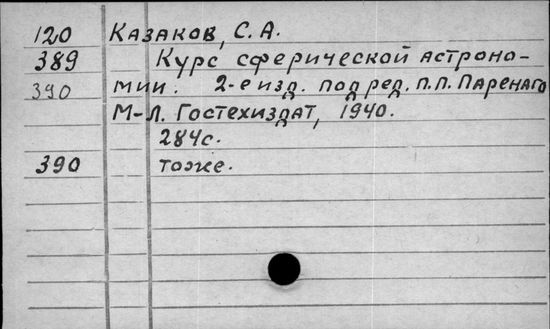 120 Казаков, С. А.
389 Курс сферической астроно-
390 мии. 2-е изд. под ред. П.П. Паренаго
М-Л. Гостехиздат, 1940.
284с.
390 тоже.